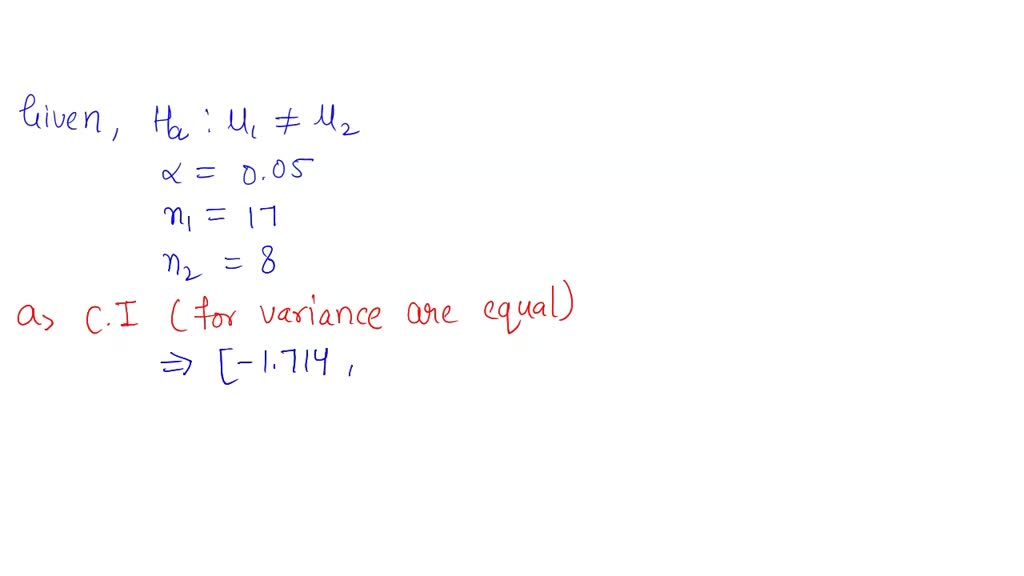 Given, Ha : μ1 ≠ μ2
α = 0.05
n1 = 17
n2 = 8
a> C.I (for variance are equal)
⇒ [-1.714 ,